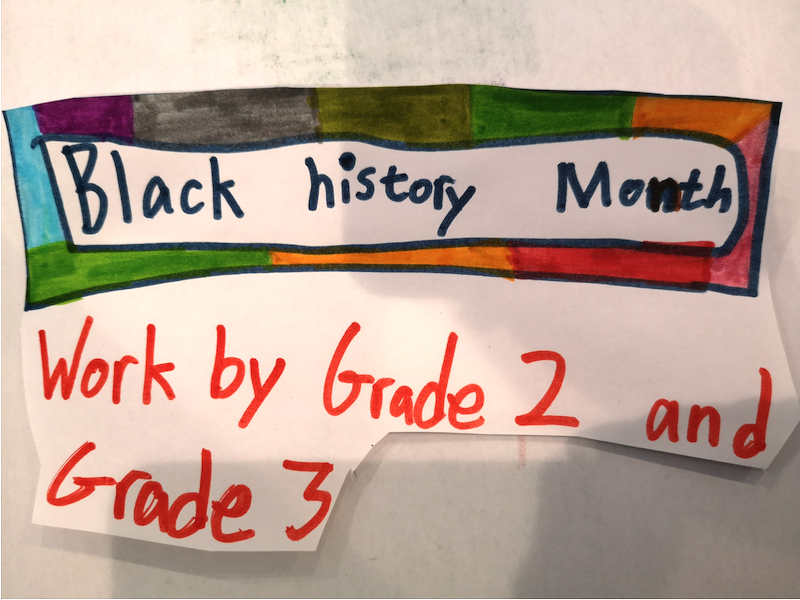 Black history Month
Work by Grade 2 and
Grade 3